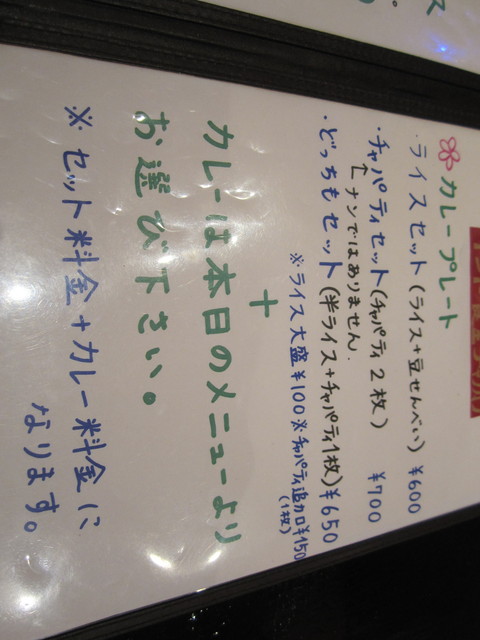 カレープレート
・ライスセット(ライス+豆せんべい) ¥600
・チャパティセット(チャパティ2枚) ¥700
↑ナンではありません.
・どっちもセット(半ライス+チャパティ1枚)¥650
※ライス大盛¥100※チャパティ追加¥150
(1枚)
+
カレーは本日のメニューより
お選び下さい。
※セット料金+カレー料金に
なります。